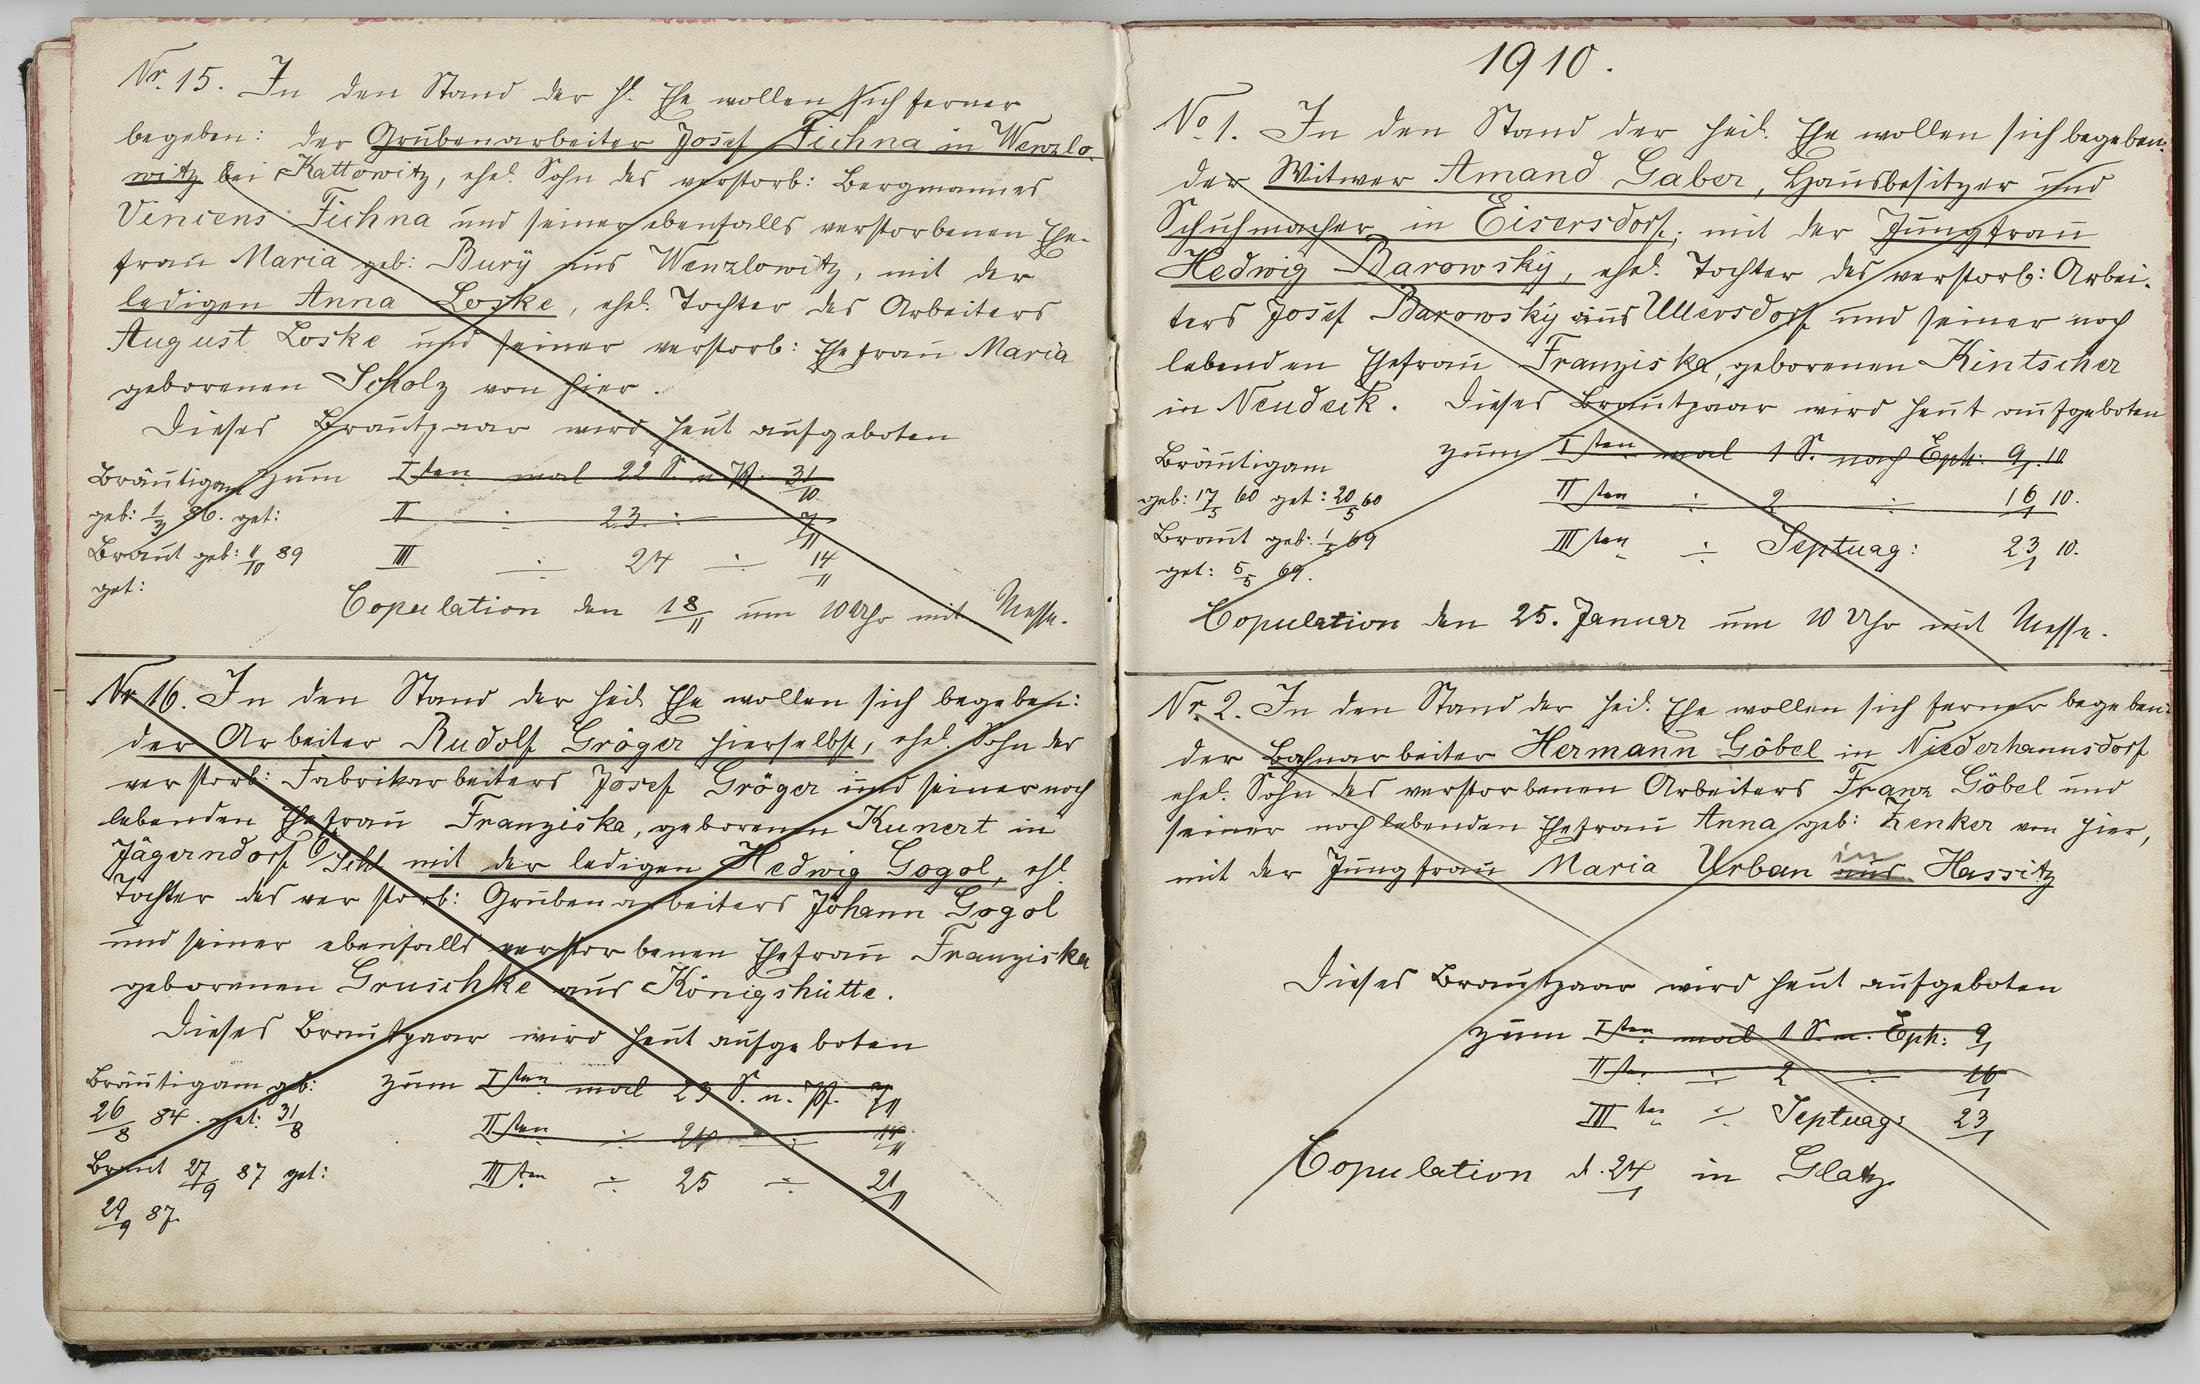 Nr. 15. In den Stand der hl. Ehe wollen sich ferner
begeben: der Grubenarbeiter Josef Fichna in Wenzlo-
witz bei Kattowitz, ehel. Sohn des verstorb: Bergmannes
Vincens Fichna und seiner ebenfalls verstorbenen Ehe-
frau Maria geb: Burÿ aus Wenzlowitz, mit der
ledigen Anna Loske, ehel. Tochter des Arbeiters
August Loske und seiner verstorb: Ehefrau Maria
geborenen Scholz von hier.
Dieses Brautpaar wird heut aufgeboten
Bräutigam zum Isten mal 22 S. n. Pf. 31/10
geb: 1/3 86. get: II ÷ 23 ÷ 7/11
Braut geb: 11/10 89 III ÷ 24 ÷ 14/11
get:
Copulation den 18/11 um 10 Uhr mit Messe.
Nr. 16. In den Stand der heil. Ehe wollen sich begeben:
der Arbeiter Rudolf Gröger hierselbst, ehel. Sohn des
verstorb: Fabrikarbeiters Josef Gröger und seiner noch
lebenden Ehefrau Franziska, geborenen Kunert in
Jägerndorf Ö/Schl mit der ledigen Hedwig Gogol, ehl.
Tochter des verstorb: Grubenarbeiters Johann Gogol
und seiner ebenfalls verstorbenen Ehefrau Franziska
geborenen Gruschke aus Königshütte.
Dieses Brautpaar wird heut aufgeboten
Bräutigam gb: zum Isten mal 23 S. n. Pf. 7/11
26/8 84. get: 31/8 IIsten ÷ 24 ÷ 14/11
Braut 27/9 87 get: IIIsten ÷ 25 ÷ 21/11
29/9 87.
1910.
No 1. In den Stand der heil. Ehe wollen sich begeben:
der Witwer Amand Gaber, Hausbesitzer und
Schuhmacher in Eisersdorf; mit der Jungfrau
Hedwig Barowskÿ, ehel. Tochter des verstorb: Arbei-
ters Josef Barowskÿ aus Ullersdorf und seiner noch
lebenden Ehefrau Franziska, geborenen Kintscher
in Neudeck. Dieses Brautpaar wird heut aufgeboten
Bräutigam zum Isten mal 1 S. nach Eph: 9/1. 10
geb: 17/5 60 get: 20/5 60 IIsten ÷ 2 ÷ 16/1 10.
Braut geb: 1/5 69 IIIsten ÷ Septuag: 23/1 10.
get: 5/5 69.
Copulation den 25. Januar um 10 Uhr mit Messe.
Nr. 2. In den Stand der heil. Ehe wollen sich ferner begeben:
der Bahnarbeiter Hermann Göbel in Niederhannsdorf
ehel. Sohn des verstorbenen Arbeiters Franz Göbel und
seiner noch lebenden Ehefrau Anna geb: Zenker von hier,
mit der Jungfrau Maria Urban aus in Hassitz
Dieses Brautpaar wird heut aufgeboten
zum Isten mal 1 S. n. Eph: 9/1
IIten ÷ 2 ÷ 16/1
IIIten ÷ Septuag: 23/1
Copulation d. 24/1 in Glatz